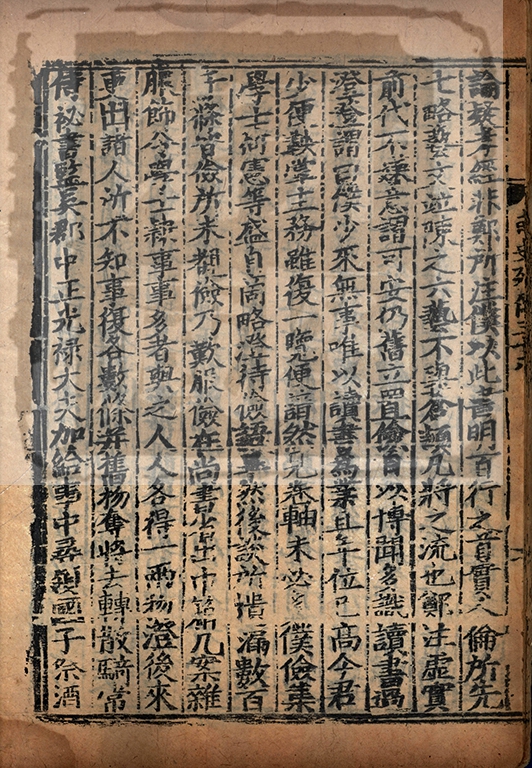 論疑孝經非鄭所注僕以此書明百行之首實人倫所先
七略藝文並陳之六藝不與蒼頡凡將之流也鄭注虛實
前代不嫌意謂可安仍舊立置儉自以博聞多識讀書過
澄澄謂曰僕少來無事唯以讀書為業且年位已高今君
少便鞅掌王務雖復一覽便諳然見卷軸未必多僕儉集
學士何憲等盛自商略澄待儉語畢然後談所遺漏數百
千條皆儉所未覩儉乃歎服儉在尚書省出巾箱几案雜
服飾令學士隸事事多者與之人人各得一兩物澄後來
更出諸人所不知事復各數條并舊物奪將去轉散騎常
侍祕書監吳郡中正光祿大夫加給事中尋領國子祭酒